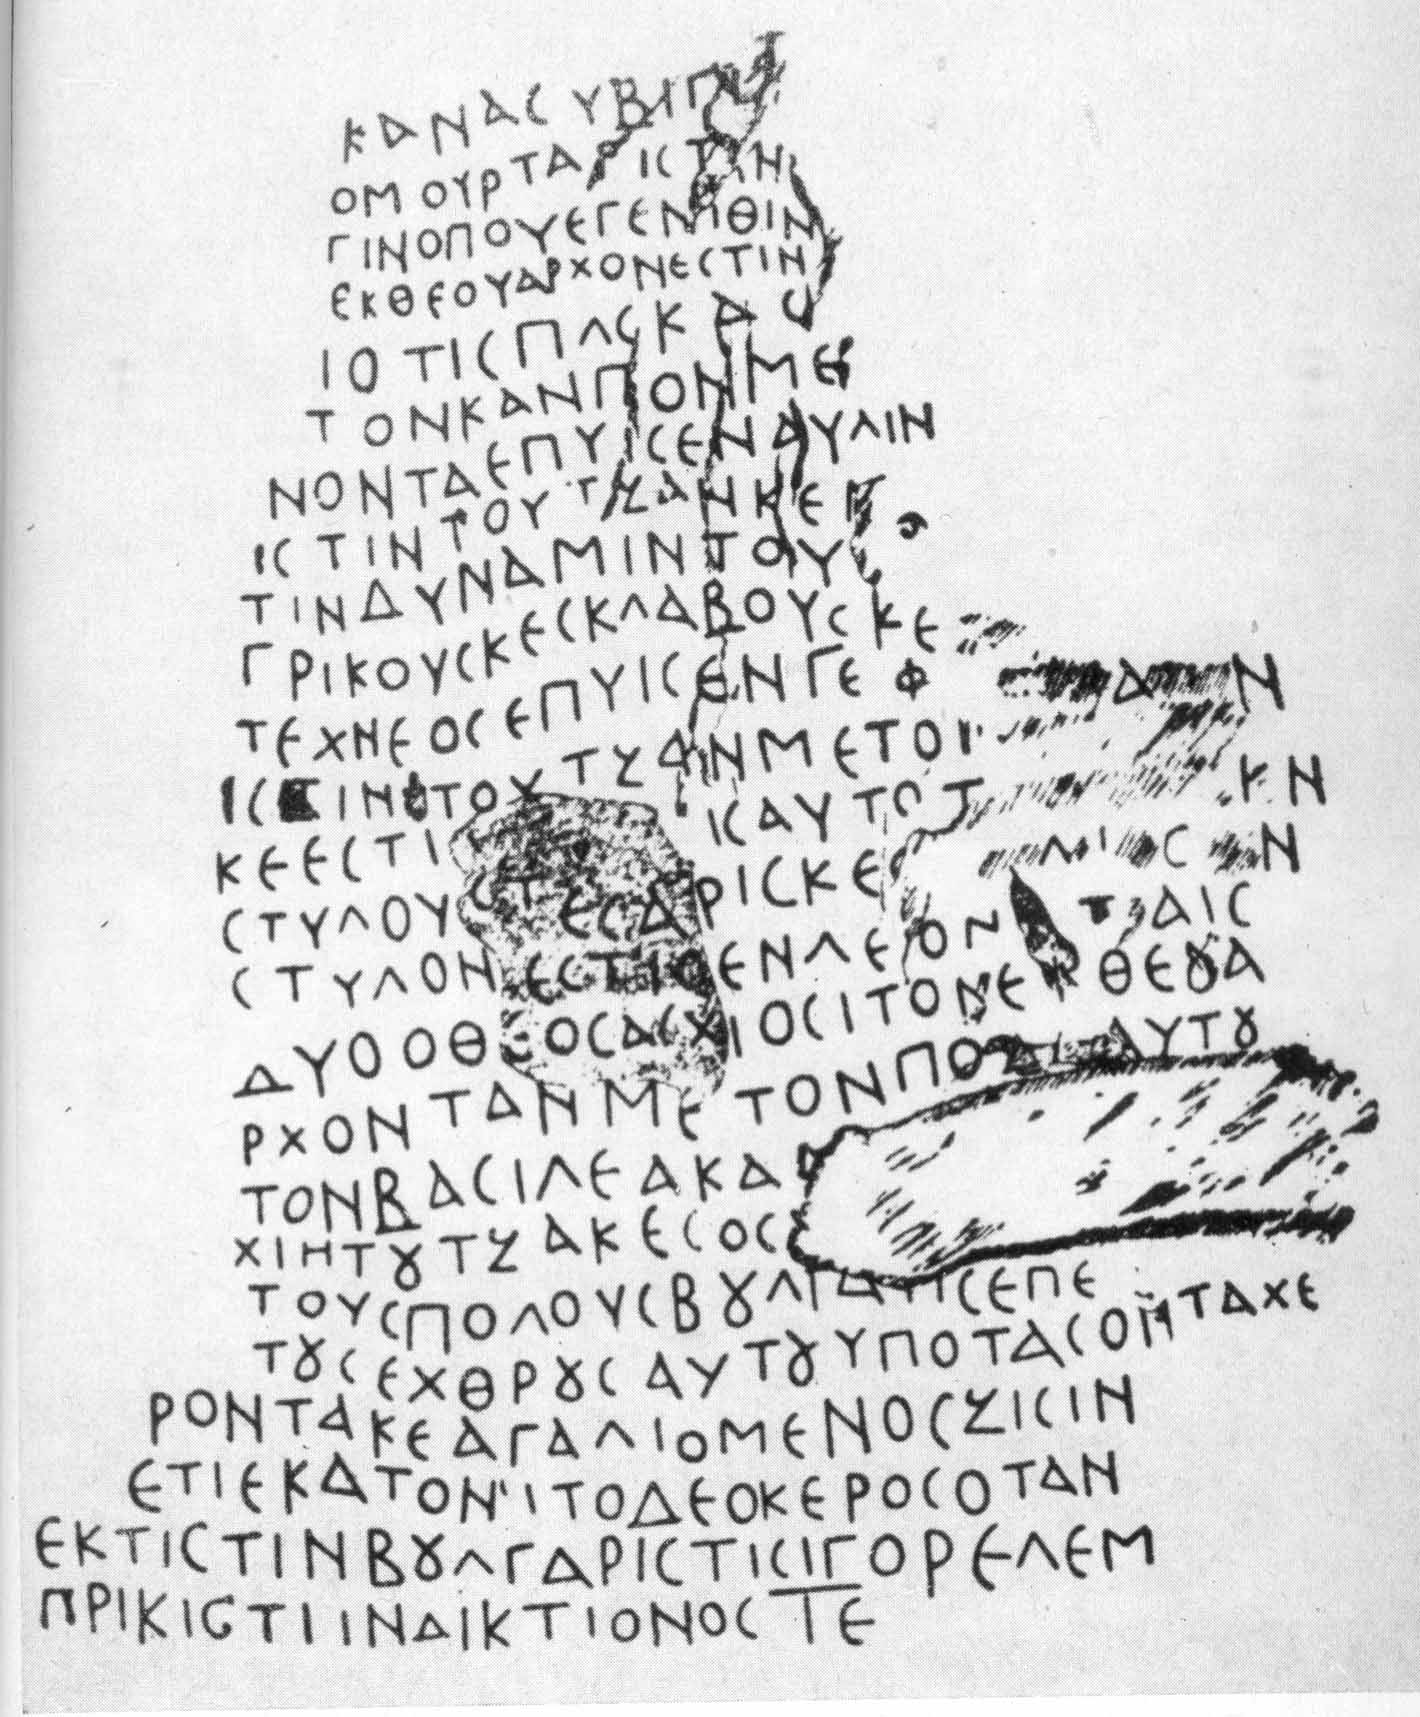 ΚΑΝΑCΥΒΙΓΙ
ΟΜΟΥΡΤΑΓΙCΤΙΝ
ΓΙΝΟΠΟΥΕΓΕΝΙΘΙΝ
ΕΚΘΕΟΥΑΡΧΟΝΕCΤΙΝ
ΙΟΤΙCΠΛCΚΑC
ΤΟΝΚΑΝΠΟΝΜΕ
ΝΟΝΤΑΕΠΥΙCΕΝΑΥΛΙΝ
ΙCΤΙΝΤΟΥΤΖΑΝΚΕΠ
ΤΙΝΔΥΝΑΜΙΝΤΟΥ
ΓΡΙΚΟΥCΚΕCΚΛΑΒΟΥCΚΕ
ΤΕΧΝΕΟCΕΠΥΙCΕΝΓΕΦ ΑΝ
ΙCΤΙΝΤΟΥΤΖΑΝΜΕΤΟΙ
ΚΕΕCΤΙ ΙCΑΥΤΟΤ ΙΝ
CΤΥΛΟΥCΤΕCΑΡΙCΚΕ ΛΙΟCΝ
CΤΥΛΟΝΕCΤΙCΕΝΛΕΟΝΤΑΙC
ΔΥΟΟΘΕΟCΑCΧΙΟCΙΤΟΝΕΚΘΕȢΑ
ΡΧΟΝΤΑΝΜΕΤΟΝΠΟΔΑΑΥΤȢ
ΤΟΝΒΑCΙΛΕΑΚΑ
ΧΙΗΤȢΤΖΑΚΕCΟC
ΤΟΥCΠΟΛΟΥCΒȢΛΓΑΡΙCΕΠΕ
ΤȢCΕΧΘΡȢCΑΥΤȢΥΠΟΤΑCΟΝΤΑΧΕ
ΡΟΝΤΑΚΕΑΓΑΛΙΟΜΕΝΟCΖΙCΙΝ
ΕΤΙΕΚΑΤΟΝΙΤΟΔΕΟΚΕΡΟCΟΤΑΝ
ΕΚΤΙCΤΙΝΒȢΛΓΑΡΙCΤΙCΙΓΟΡΕΛΕΜ
ΠΡΙΚΙCΤΙΙΝΔΙΚΤΙΟΝΟCΤΕ